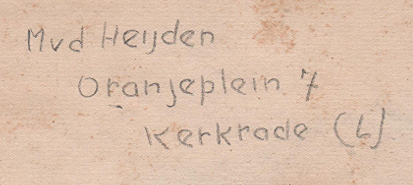 Mvd Heijden
Oranjeplein 7
Kerkrade (L)